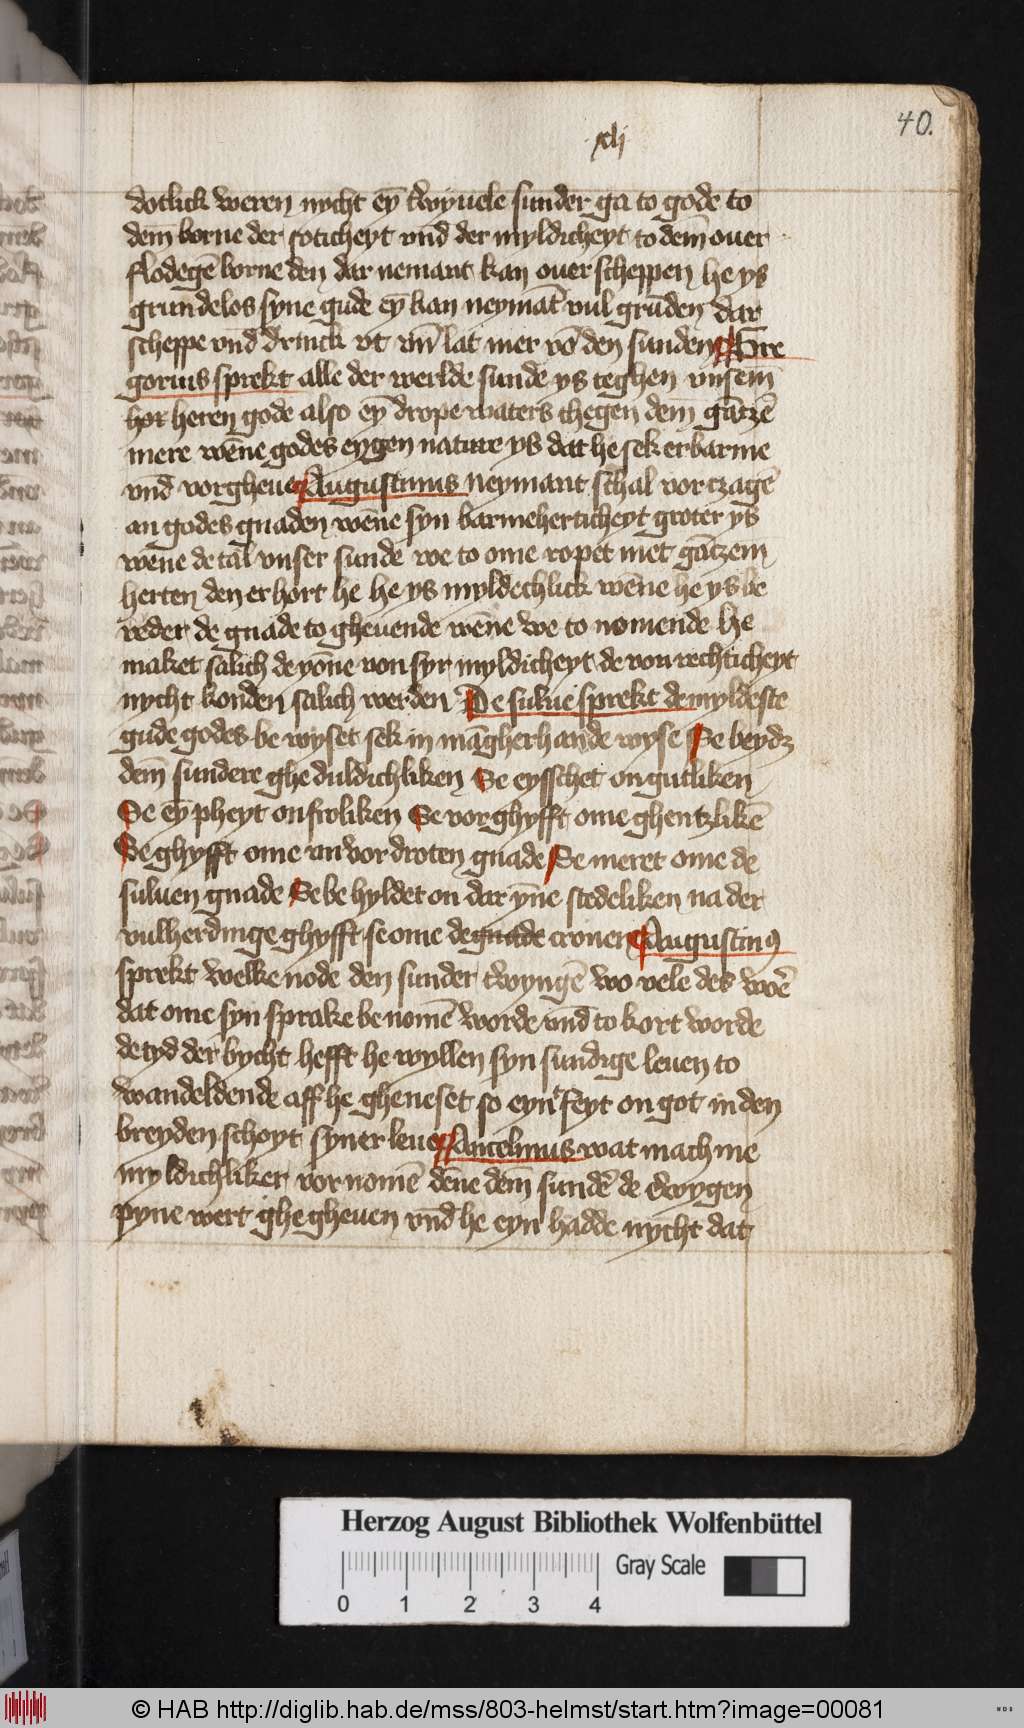 xli
40.
dotlick weren nycht ey̅ twyuele sunder ga to gode to
dem̅ borne der soticheyt vnd̅ der myldicheyt to dem̅ ouer
flodege̅ borne den dar nemant kan ouer scheppen he ys
grundelos syne gude ey̅ kan neyma̅t vul gru̅den dar
scheppe vnd̅ drinck vt vn̅ lat mer vo̅ den sunden Gre
gorius sprekt alle der werlde sunde ys teghen vnsem̅
hor heren gode also ey̅ drope waters theghen dem̅ ga̅tze̅
mere we̅ne godes eygen nature ys dat he sek erbarme
vnd̅ vorgheue Augustinus neymant schal vorczage̅
an godes gnaden we̅ne syn barmeherticheyt groter ys
we̅ne de tal vnser sunde we to ome ropet met ga̅tzem
herten den erhort he he ys myldechlick we̅ne he ys be
reder de gnade to gheuende we̅ne we to nomende he
maket salich de yo̅ne von syr myldicheyt de von rechticheyt
nycht konden salich werden De sulue sprekt de myldeste
gude godes be wyset sek in ma̅gherhande wyse Se beydz
dem̅ sundere ghe duldichliken Se eysschet on gutliken
Se ey̅pheyt on froliken Se vorghyfft ome ghentzlike̅
Se ghyfft ome vnvordroten gnade Se meret ome de
suluen gnade Se be hyldet on dar y̅ne stedeliken na der
vulherdinge ghyfft se ome de gnade cronen Augustin9
sprekt welke node den sunder twynge̅ wo vele des wöe̅
dat ome syn sprake benome̅ worde vnd̅ to kort worde
de tyd der bycht hefft he wyllen syn sundige leuen to
wandeldende aff he gheneset so eyntfeyt on got in den
breyden schoyt syner leue Ancelmus wat mach me
myldichliker vornome̅ de̅ne dem̅ sunde̅ de ewygen
pyne wert ghegheuen vnd̅ he eyn hadde nycht dat
Herzog August Bibliothek Wolfenbüttel
Gray Scale
0 1 2 3 4
© HAB http://diglib.hab.de/mss/803-helmst/start.htm?image=00081